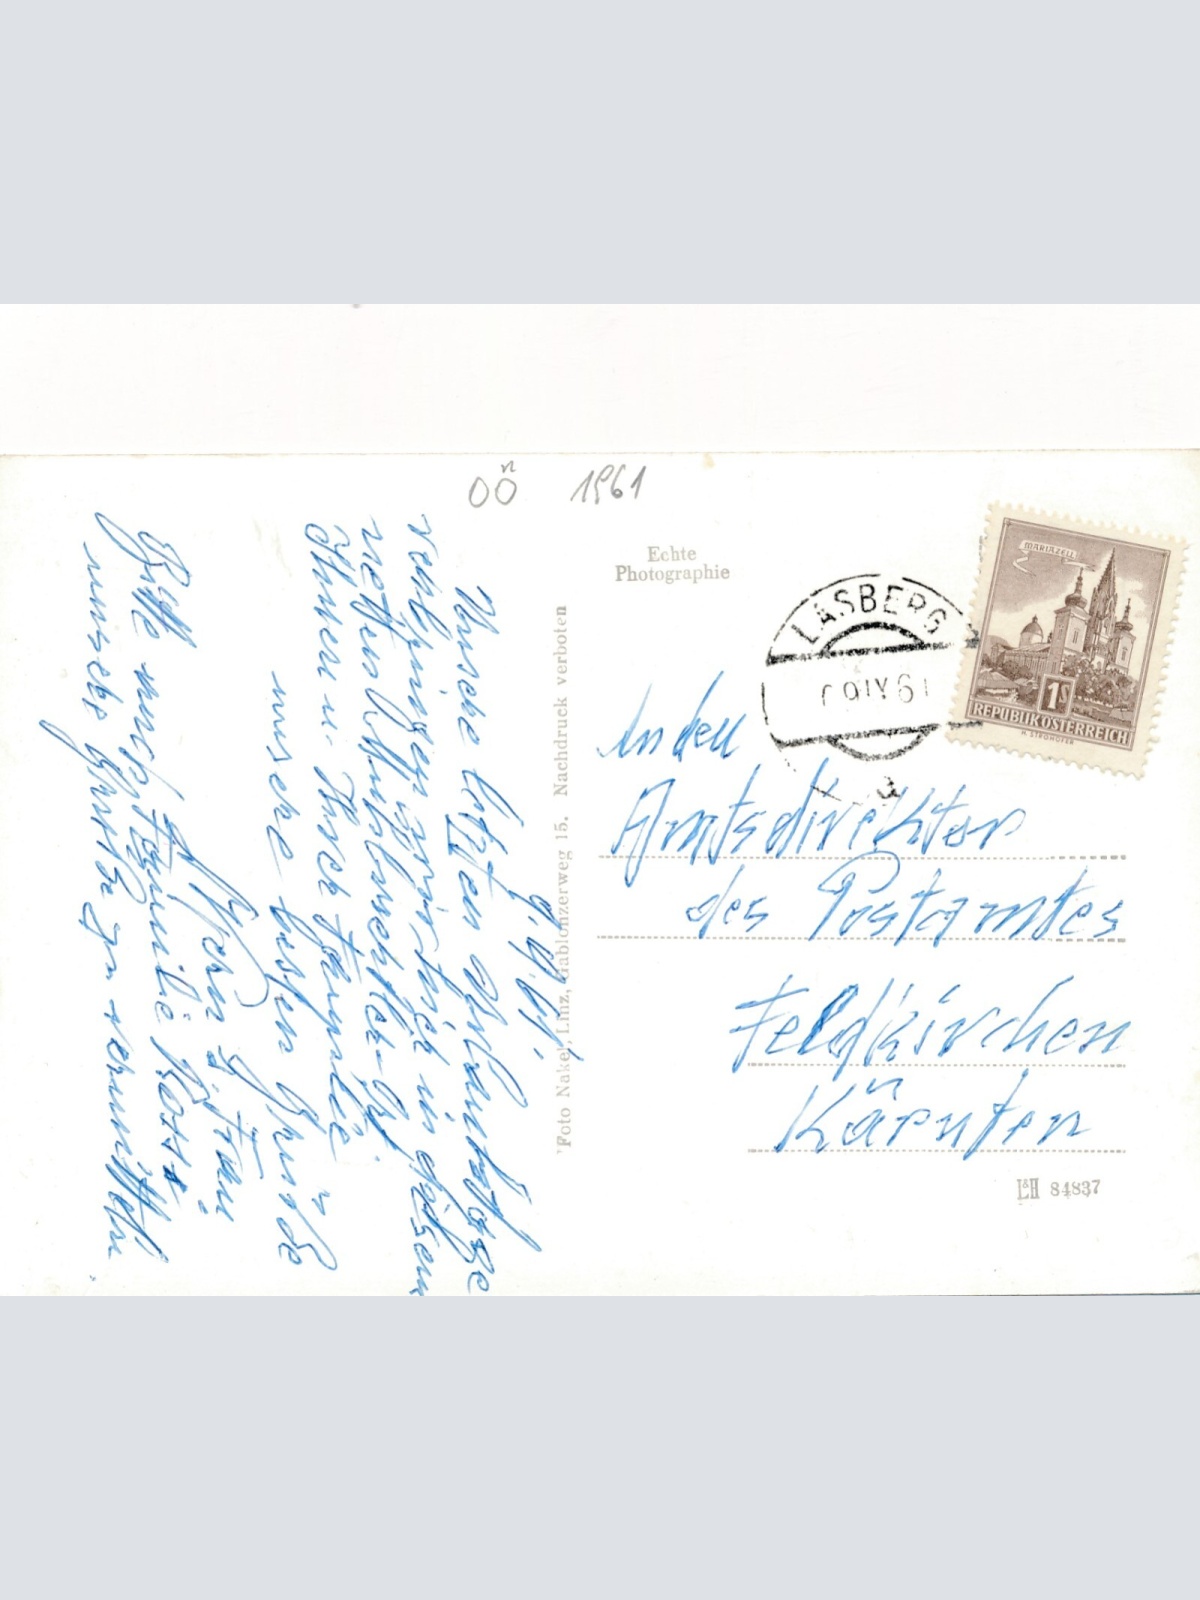 OÖ 1961
Echte
Photographie
MARIAZELL
1S
REPUBLIK ÖSTERREICH
H. STROHOFER
LASBERG
9 IX 61
a
An den
Amtsdirektor
des Postamtes
Feldkirchen
Kärnten
L&H 84837
Foto Nakel, Linz, Gablonzerweg 15. Nachdruck verboten
9.9.61.
Unsere letzten Urlaubstage
verbringen wir in diesem
netten
Ihnen u. Ihrer Familie
unsere besten Grüße
u. Frau
Bitte auch Familie
unsere Grüße zu vermitteln.